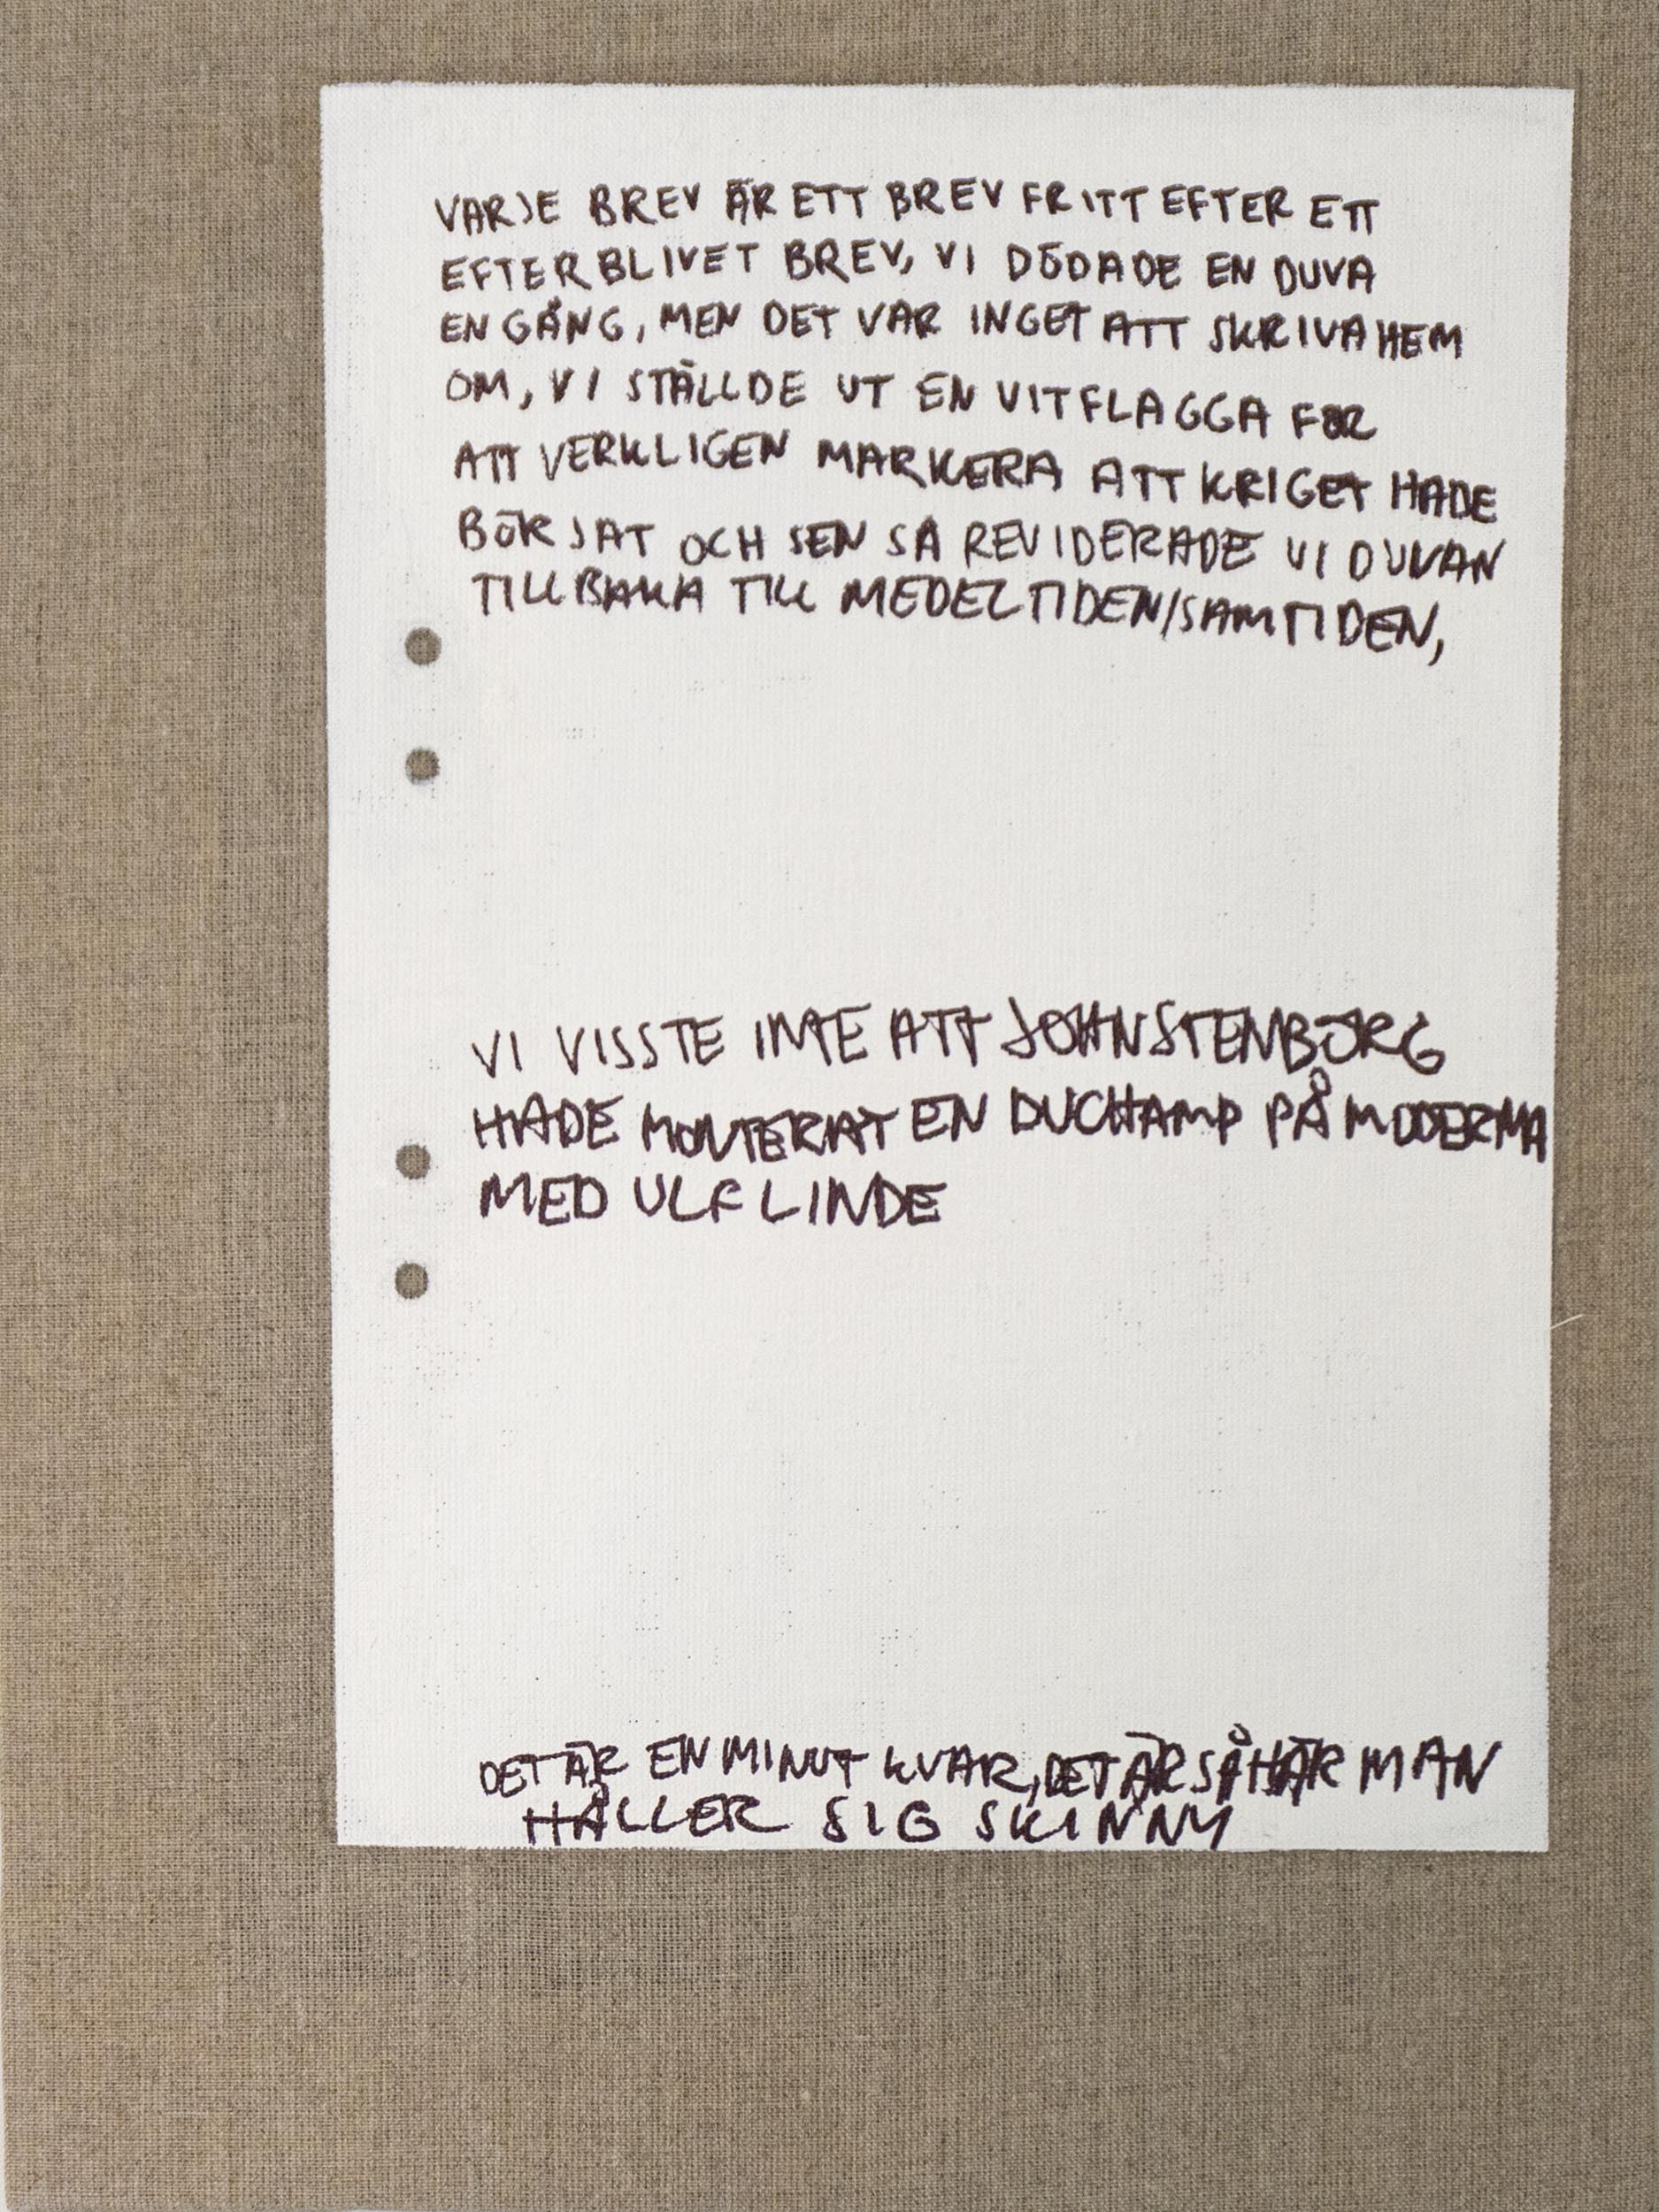 VARJE BREV ÄR ETT BREV FRITT EFTER ETT
EFTERBLIVET BREV, VI DÖDADE EN DUVA
EN GÅNG, MEN DET VAR INGET ATT SKRIVA HEM
OM, VI STÄLLDE UT EN VIT FLAGGA FÖR
ATT VERKLIGEN MARKERA ATT KRIGET HADE
BÖRJAT OCH SEN SÅ REVIDERADE VI DUVAN
TILLBAKA TILL MEDELTIDEN/SAMTIDEN,
VI VISSTE INTE ATT JOHN STENBORG
HADE MONTERAT EN DUCHAMP PÅ MODERNA
MED ULF LINDE
DET ÄR EN MINUT KVAR, DET ÄR SÅ HÄR MAN
HÅLLER SIG SKINNY